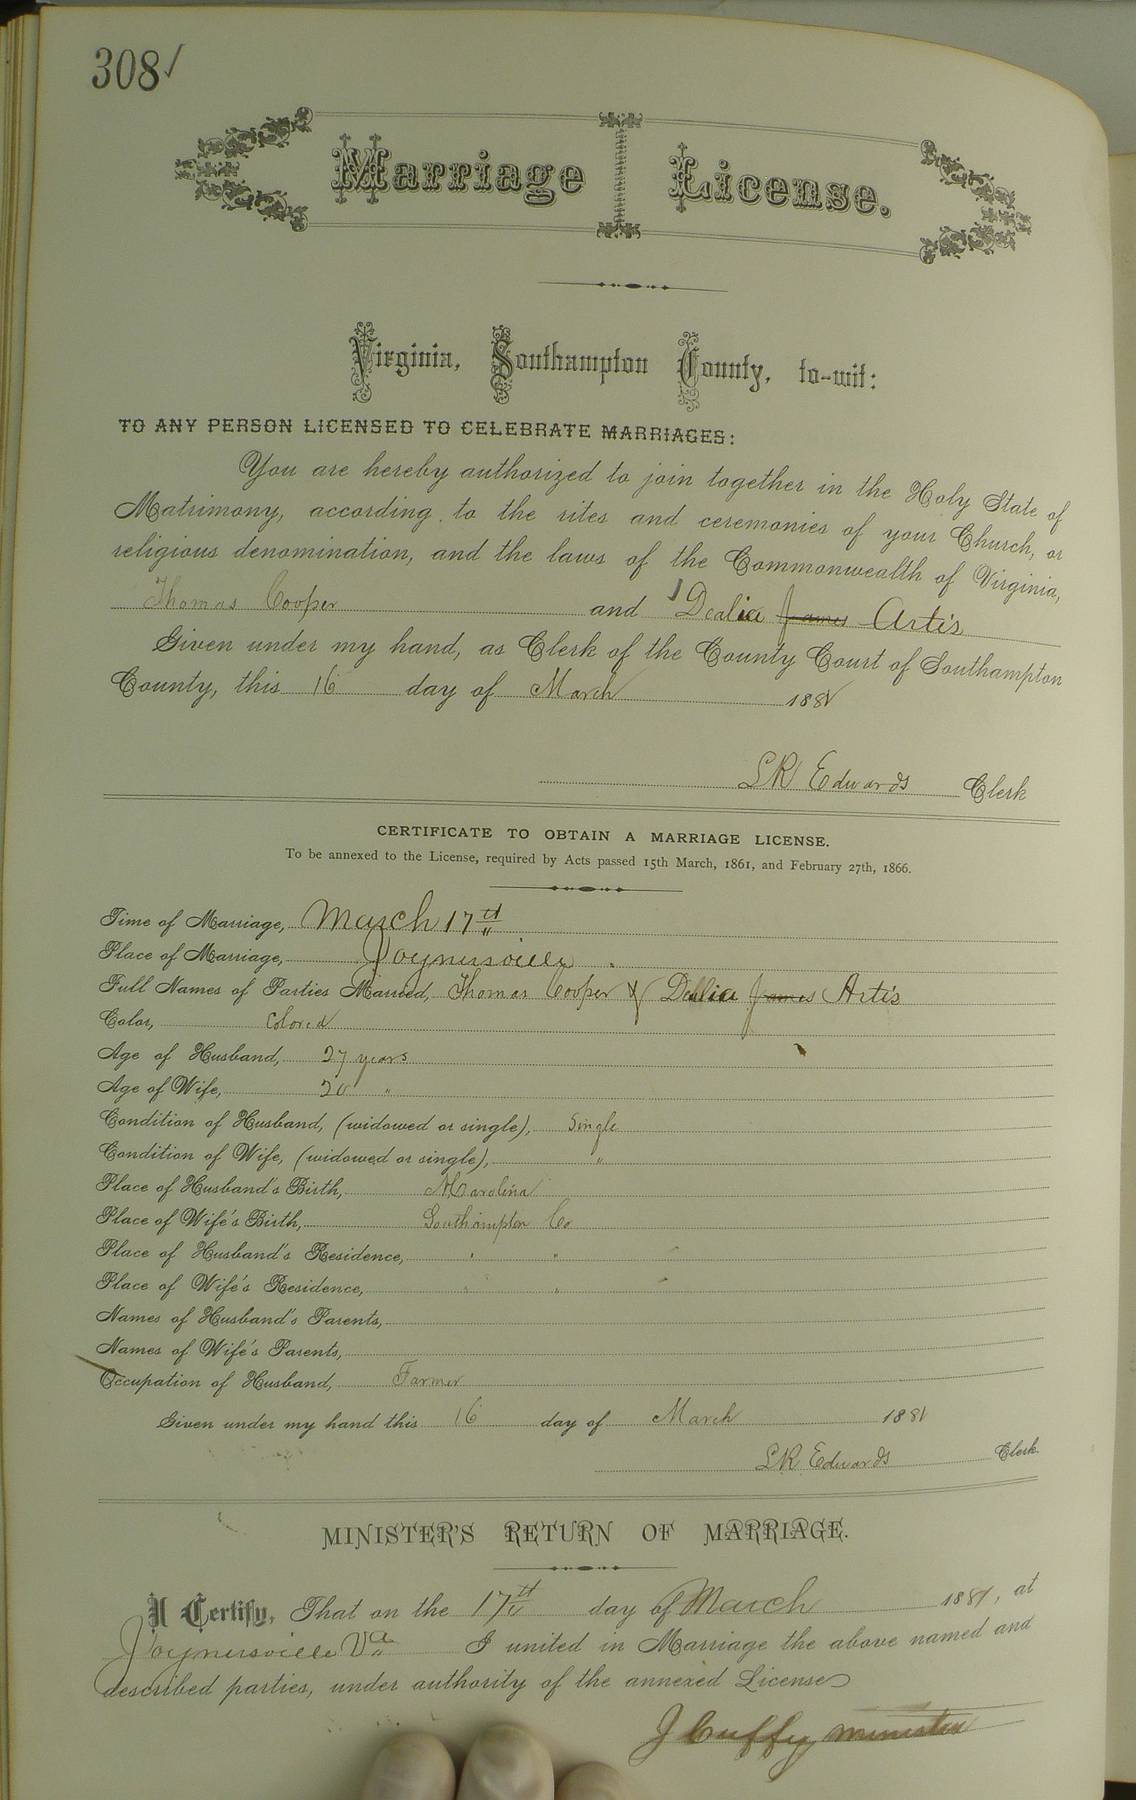 308
Marriage License.
Virginia, Southampton County, to-wit:
TO ANY PERSON LICENSED TO CELEBRATE MARRIAGES:
You are hereby authorized to join together in the Holy State of
Matrimony, according to the rites and ceremonies of your Church, or
religious denomination, and the laws of the Commonwealth of Virginia,
Thomas Cooper and Dealia James Artis
Given under my hand, as Clerk of the County Court of Southampton
County, this 16 day of March 1881
LR Edwards Clerk
CERTIFICATE TO OBTAIN A MARRIAGE LICENSE.
To be annexed to the License, required by Acts passed 15th March, 1861, and February 27th, 1866.
Time of Marriage, March 17th
Place of Marriage, Joynersville
Full Names of Parties Married, Thomas Cooper & Dealia James Artis
Color, Colored
Age of Husband, 27 years
Age of Wife, 20 "
Condition of Husband, (widowed or single), Single
Condition of Wife, (widowed or single), "
Place of Husband's Birth, N Carolina
Place of Wife's Birth, Southampton Co
Place of Husband's Residence, " "
Place of Wife's Residence, " "
Names of Husband's Parents,
Names of Wife's Parents,
Occupation of Husband, Farmer
Given under my hand this 16 day of March 1881
LR Edwards Clerk.
MINISTER'S RETURN OF MARRIAGE.
I Certify, That on the 17th day of March 1881, at
Joynersville Va I united in Marriage the above named and
described parties, under authority of the annexed License
J Cuffy minister